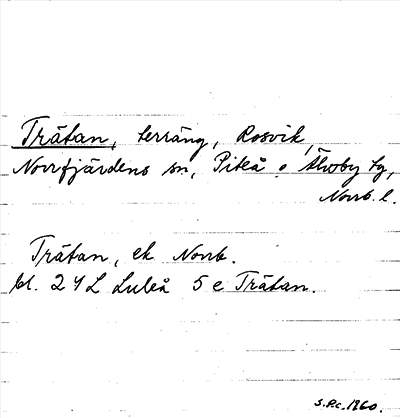 Trätan, terräng, Rosvik,
Norrfjärdens sn, Piteå o. Älvsby tg,
Norrb. l.
Trätan, ek Norrb.
bl. 24L Luleå 5e Trätan.
S.P.c. 1960.